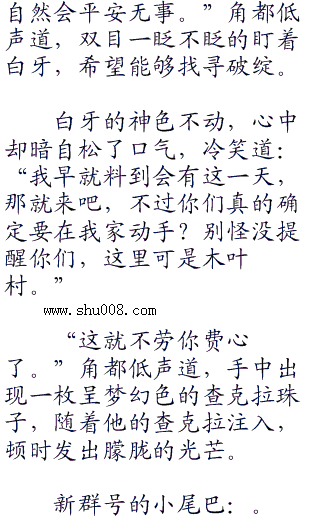 自然会平安无事。”角都低
声道，双目一眨不眨的盯着
白牙，希望能够找寻破绽。
白牙的神色不动，心中
却暗自松了口气，冷笑道：
“我早就料到会有这一天，
那就来吧，不过你们真的确
定要在我家动手？别怪没提
醒你们，这里可是木叶
村。”
www.shu008.com
“这就不劳你费心
了。”角都低声道，手中出
现一枚呈梦幻色的查克拉珠
子，随着他的查克拉注入，
顿时发出朦胧的光芒。
新群号的小尾巴：。